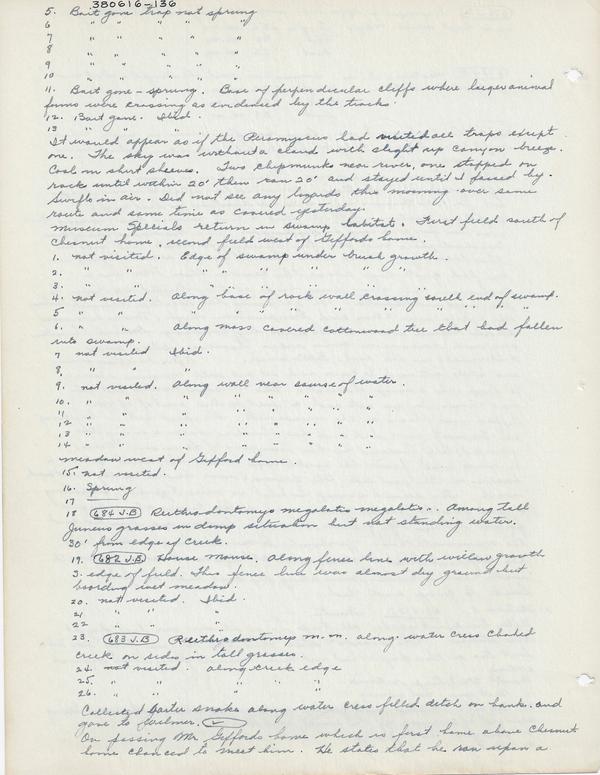 380616-136
5. Bait gone trap not sprung
6 " " " " "
7 " " " " "
8 " " " " "
9 " " " " "
10 " " " " "
11. Bait gone - sprung. Base of perpendicular cliffs where larger animal
forms were crossing as evidenced by the tracks.
12. Bait gone. Ibid.
13 " " "
It would appear as if the Peromyscus had visited all traps except
one. The sky was without a cloud with slight up canyon breeze.
Cool in shirt sleeves. Two chipmunks near river, one stopped on
rock until within 20' then ran 20' and stayed until I passed by.
Swifts in air. Did not see any lizards this morning over same
route and same time as covered yesterday.
Museum Specials return in swamp habitat. First field south of
Chesnut home, second field west of Giffords home.
1. not visited. Edge of swamp under brush growth.
2. " " " " " " " "
3. " " " " " " " "
4. not visited. Along base of rock wall crossing south end of swamp.
5 " " " " " " " " " " "
6. " " Along moss covered cottonwood tree that had fallen
into swamp.
7 not visited Ibid.
8. " " "
9. not visited. Along wall near source of water.
10. " " " " " " " "
11 " " " " " " " "
12 " " " " " " " "
13 " " " " " " " "
14 " " " " " " " "
meadow west of Gifford home.
15. not visited.
16. Sprung
17
18 684 J.B Reithrodontomys megalotis megalotis. Among tall
Juncus grasses in damp situation but not standing water.
30' from edge of creek.
19. 682 J.B House mouse. Along fence line with willow growth
3. edge of field. This fence line was almost dry ground but
boarding east meadow.
20. not visited. Ibid.
21. " " "
22 " " "
23. 683 J.B Reithrodontomys m. m. along water cress choked
creek on sides in tall grasses.
24. not visited. along creek edge
25. " " " " "
26. " " " " "
Collected garter snake along water cress filled ditch on bank and
gave to Wilmer.
On passing Mr Giffords home which is first home above Chesnut
home chanced to meet him. He states that he ran upon a